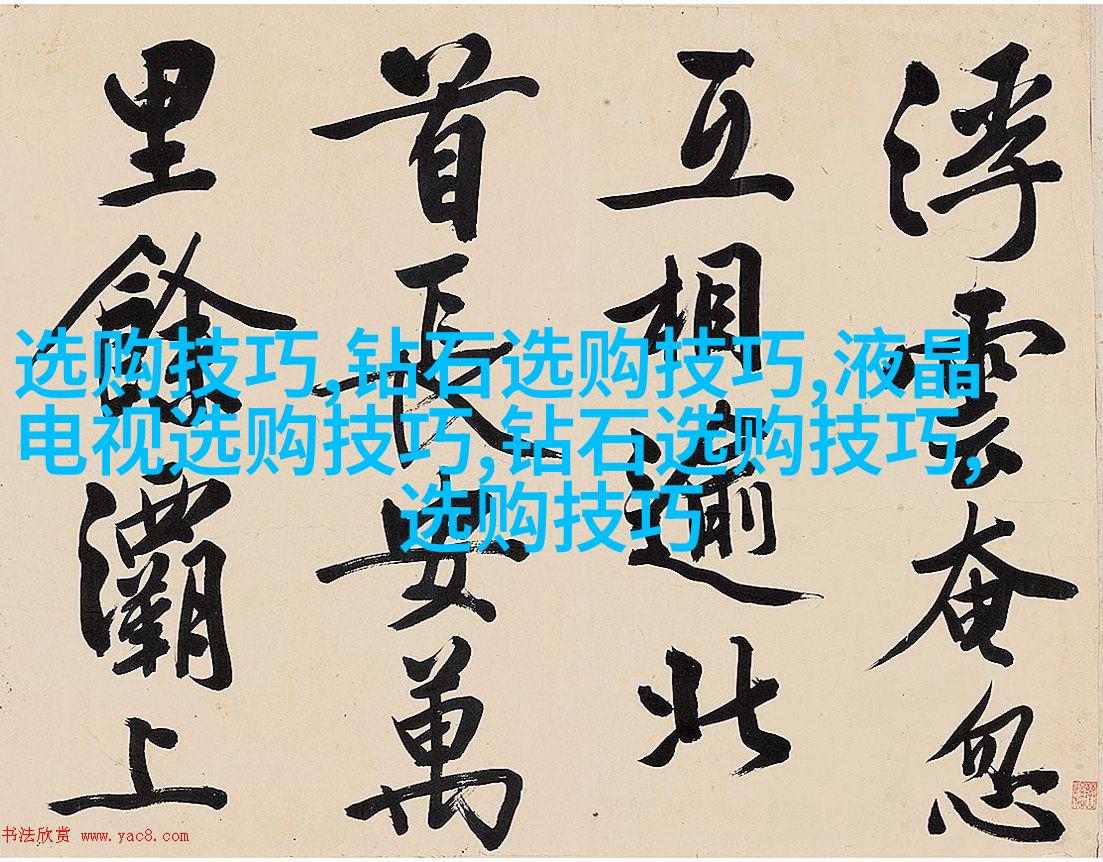 浮雲奄忽
互相逾北
首長安萬
里餘灞上
选购技巧,钻石选购技巧,液晶
电视选购技巧,钻石选购技巧,
选购技巧
书法欣赏 www.yac8.com